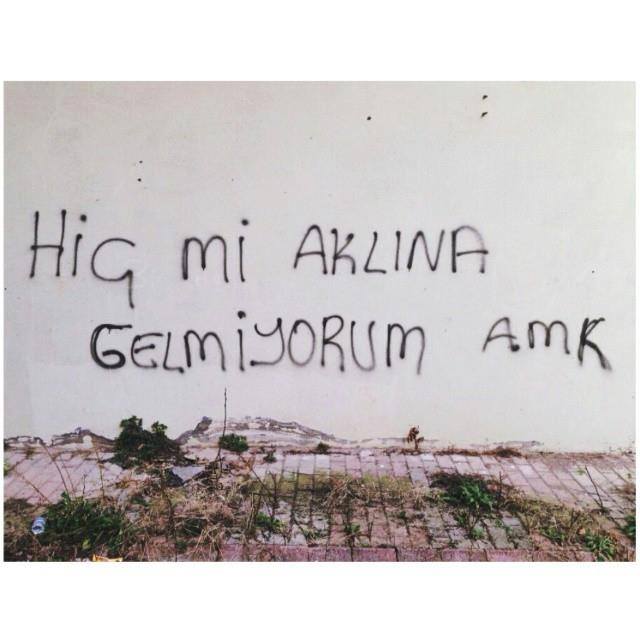 HiÇ Mi AKLINA
GELMiYORUM AMK